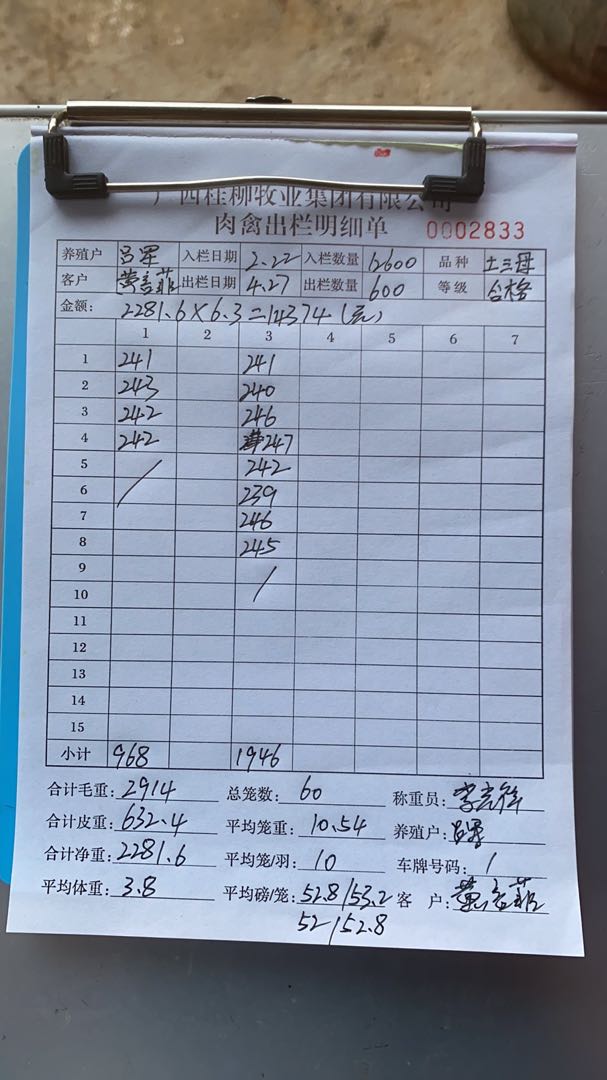 广西桂柳牧业集团有限公司
肉禽出栏明细单 0002833
养殖户 吕军 入栏日期 2.22 入栏数量 12600 品种 土三母
客户 出栏日期 4.27 出栏数量 600 等级 合格
金额: 2281.6×6.3=14374(元)
1 2 3 4 5 6 7
1 241 241
2 243 240
3 242 246
4 242 247
5 / 242
6 239
7 246
8 245
9 /
10
11
12
13
14
15
小计 968 1946
合计毛重: 2914 总笼数: 60 称重员: 李
合计皮重: 632.4 平均笼重: 10.54 养殖户: 吕军
合计净重: 2281.6 平均笼/羽: 10 车牌号码: /
平均体重: 3.8 平均磅/笼: 52.8/53.2 客 户: 黄
52/52.8